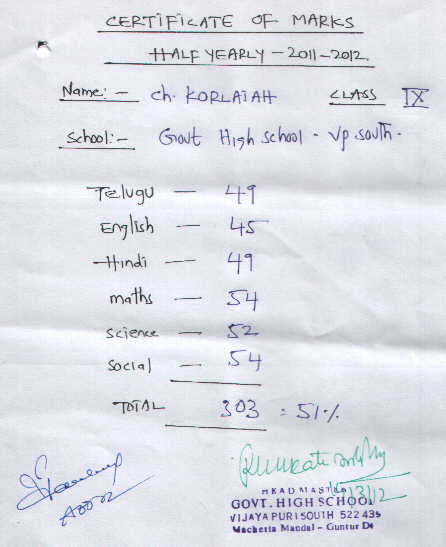 CERTIFICATE OF MARKS
HALF YEARLY - 2011-2012.
Name:- Ch. KORLAIAH CLASS IX
School:- Govt High school - Vp. south.
Telugu - 49
English - 45
Hindi - 49
maths - 54
science - 52
social - 54
TOTAL 303 = 51%
HEAD MASTER
GOVT. HIGH SCHOOL
VIJAYA PURI SOUTH 522 439
Macherla Mandal - Guntur Dt